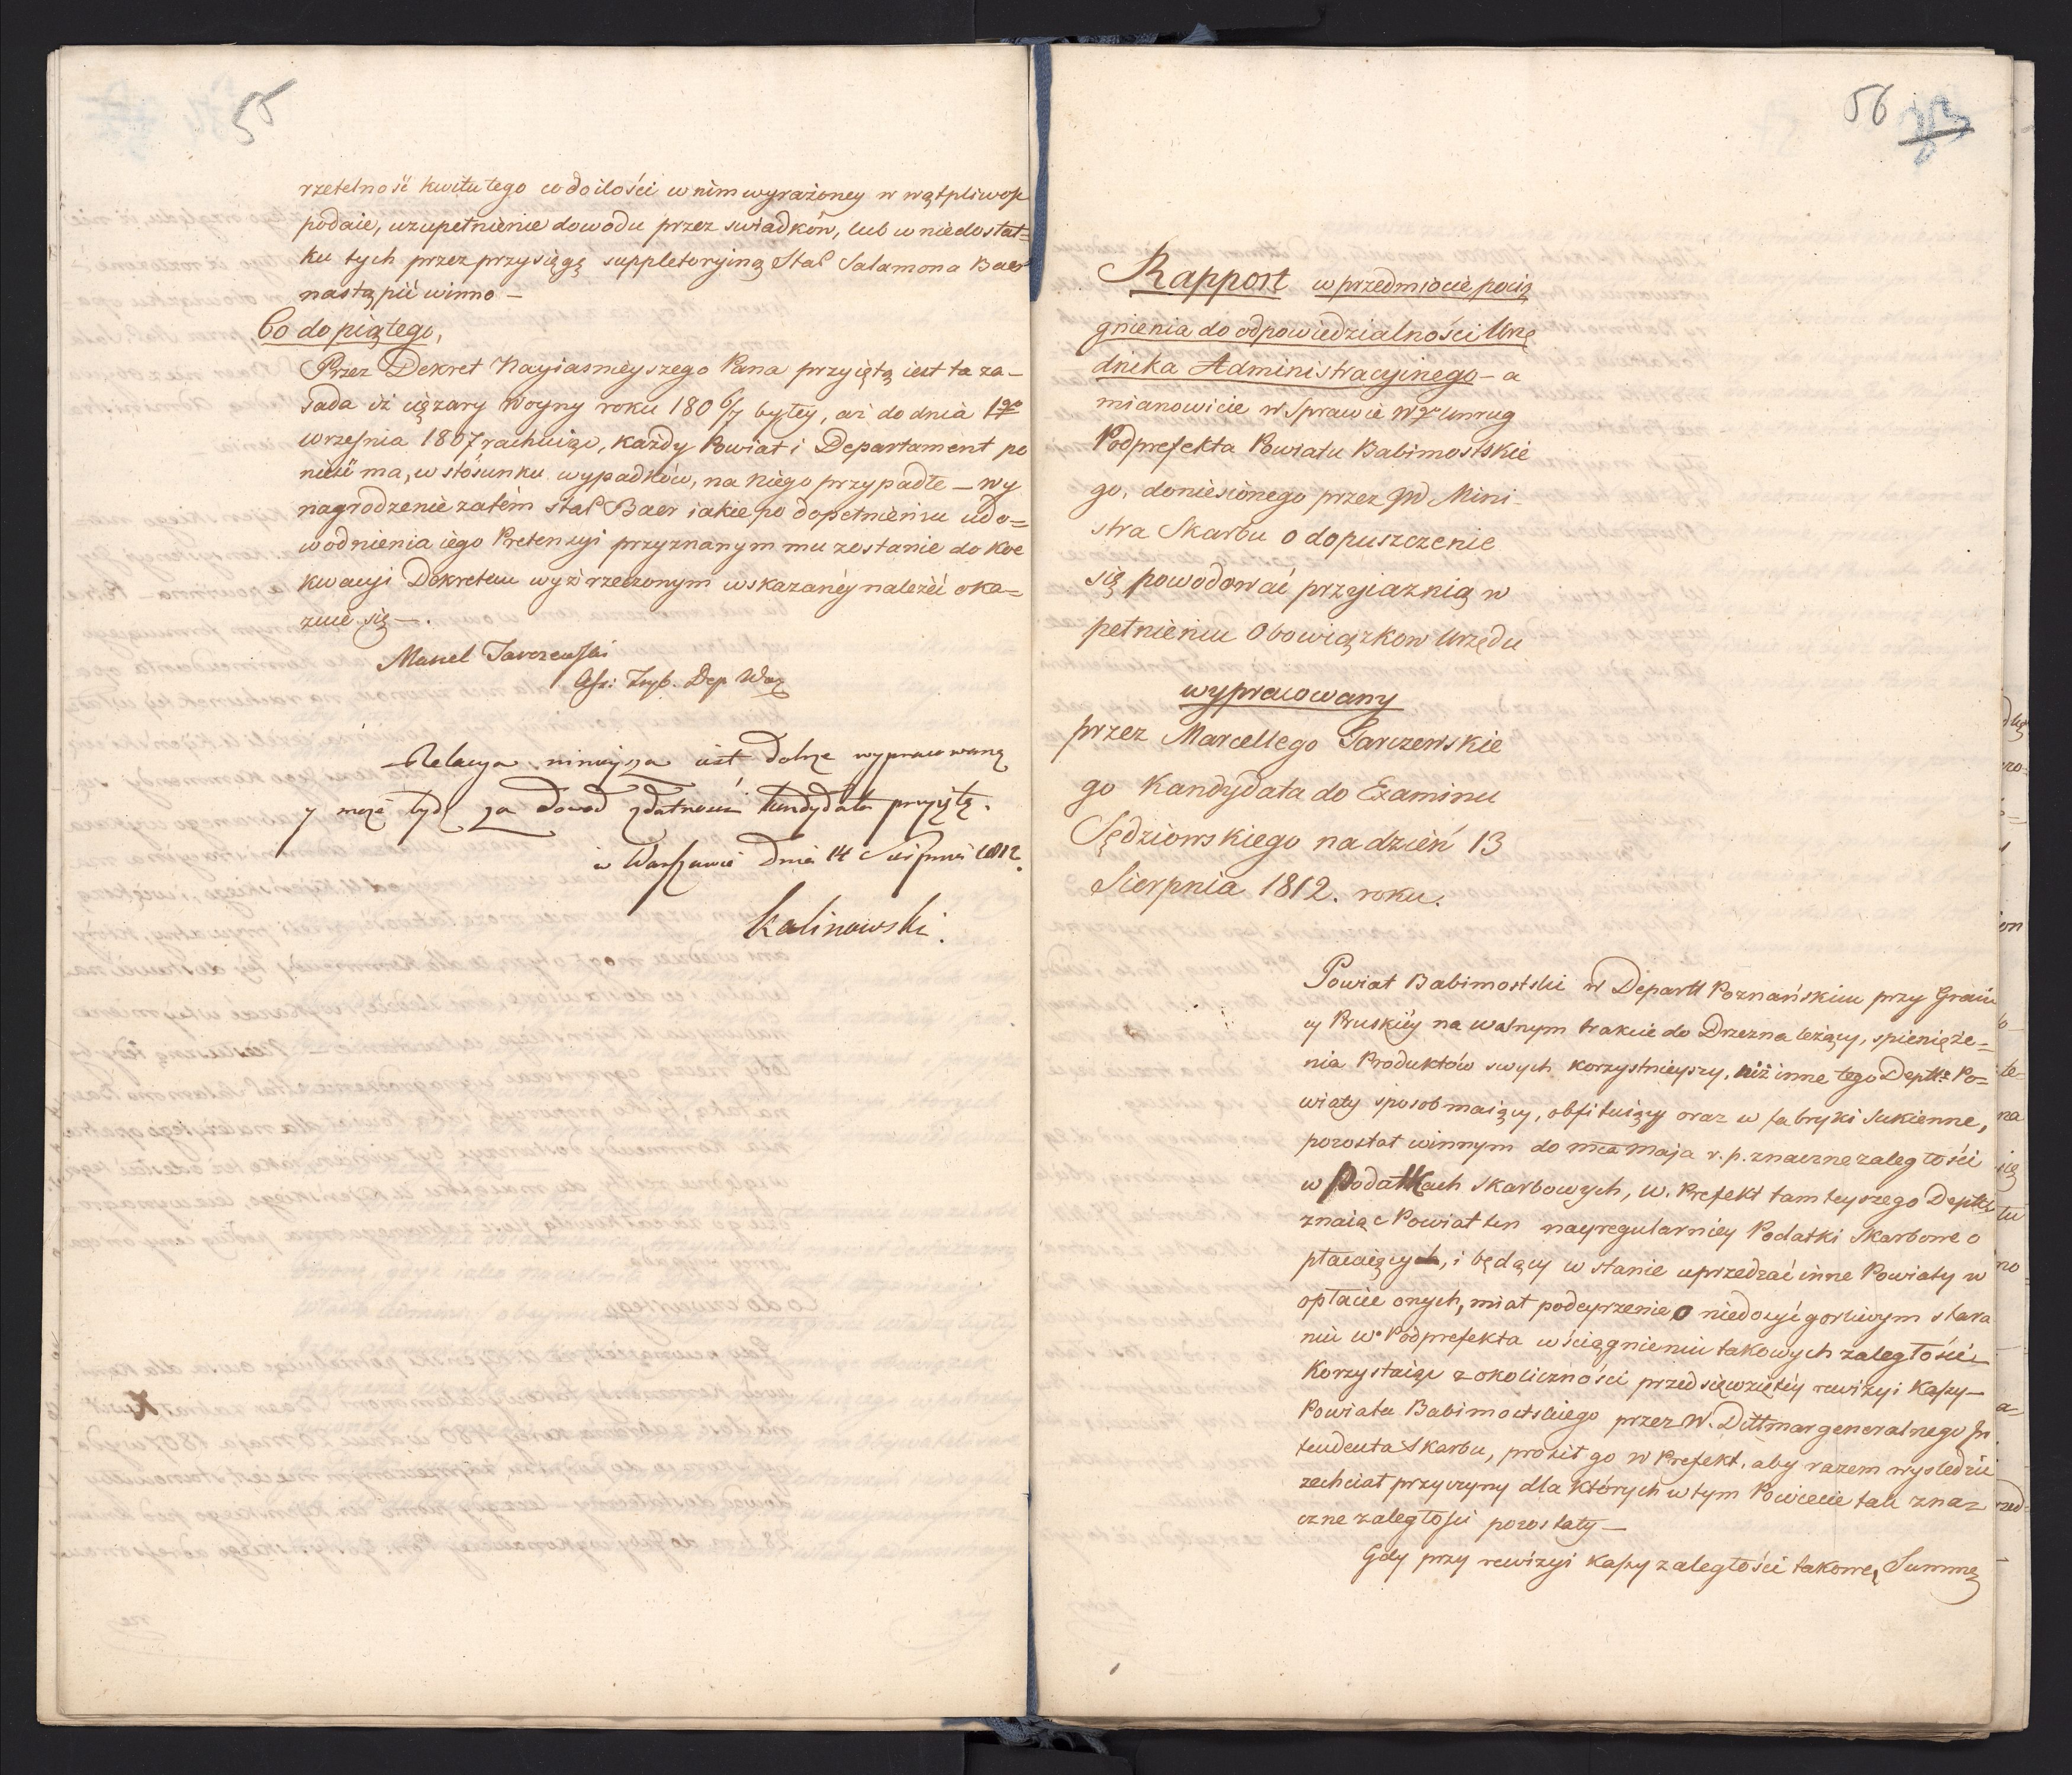 55
rzetelność kwitu tego co do ilości w nim wyrażoney w wątpliwość
podaie, uzupełnienie dowodu przez swiadków, lub w niedostat=
ku tych przez przysięgę suppletoryiną Stał Salamona Baer
nastąpić winno —
Co do piątego,
Przez Dekret Nayiasnieyszego Pana przyiętą iest ta za-
sada iż ciężary Woyny roku 180 6/7 byłey, aż do dnia 1go
września 1807 rachuiąc, każdy Powiat i Departament po
nieść ma, w stósunku wypadków, na niego przypadłe — wy
nagrodzenie zatém stał Baer iakie po dopełnieniu udo=
wodnienia iego Pretensyi przyznanym mu zostanie do koe
kwacyi Dekretem wyż rzeczonym wskazanéy należéć oka=
zuie się —.
Marcel Tarczewski
Ass: Tryb. Dep. War
Relacya ninieysza iest dobrze wypracowaną
y może bydź za dowód zdatności kandydata przyiętą.
w Warszawie dnia 14 Sierpnia 1812.
Kalinowski.
56
Rapport w przedmiocie pocią
gnienia do odpowiedzialności Urzę
dnika Administracyinego — a
mianowicie w Sprawie Wgo Unrug
Podprefekta Powiatu Babimostskie
go, doniesionego przez JW Mini-
stra Skarbu o dopuszczenie
się powodować przyiaznią w
pełnieniu Obowiązkow Urzędu
wypracowany
przez Marcellego Tarczewskie
go Kandydata do Examinu
Sędziowskiego na dzień 13
Sierpnia 1812. roku.
Powiat Babimostski w Departt Poznańskim przy Grani
cy Pruskiéy na walnym trakcie do Drezna leżący, spienięże=
nia Produktów swych korzystnieyszy, niż inne tego Deptt: Po=
wiaty sposob maiący, obfituiący oraz w fabryki Sukienne,
pozostał winnym do mca Maja r. p. znaczne zaległości
w Podatkach Skarbowych, W. Prefekt tamteyszego Deptt
znaiąc Powiat ten nayregularniey Podatki Skarbowe o
płacaiący, i będący w stanie uprzedzać inne Powiaty w
opłacie onych, miał podeyrzenie o niedosyć gorliwym stara
niu Wo Podprefekta w ściągnieniu takowych zaległości
Korzystaiąc z okoliczności przedsięwziętéy rewizyi Kassy —
Powiatu Babimostskiego przez W. Dittmar generalnego In
tendenta Skarbu, prosił go W Prefekt, aby razem wysledzić
zechciał przyczyny dla których w tym Powiecie tak zna=
czne zaległości pozostały —
Gdy przy rewizyi Kassy zaległości takowe, Summę